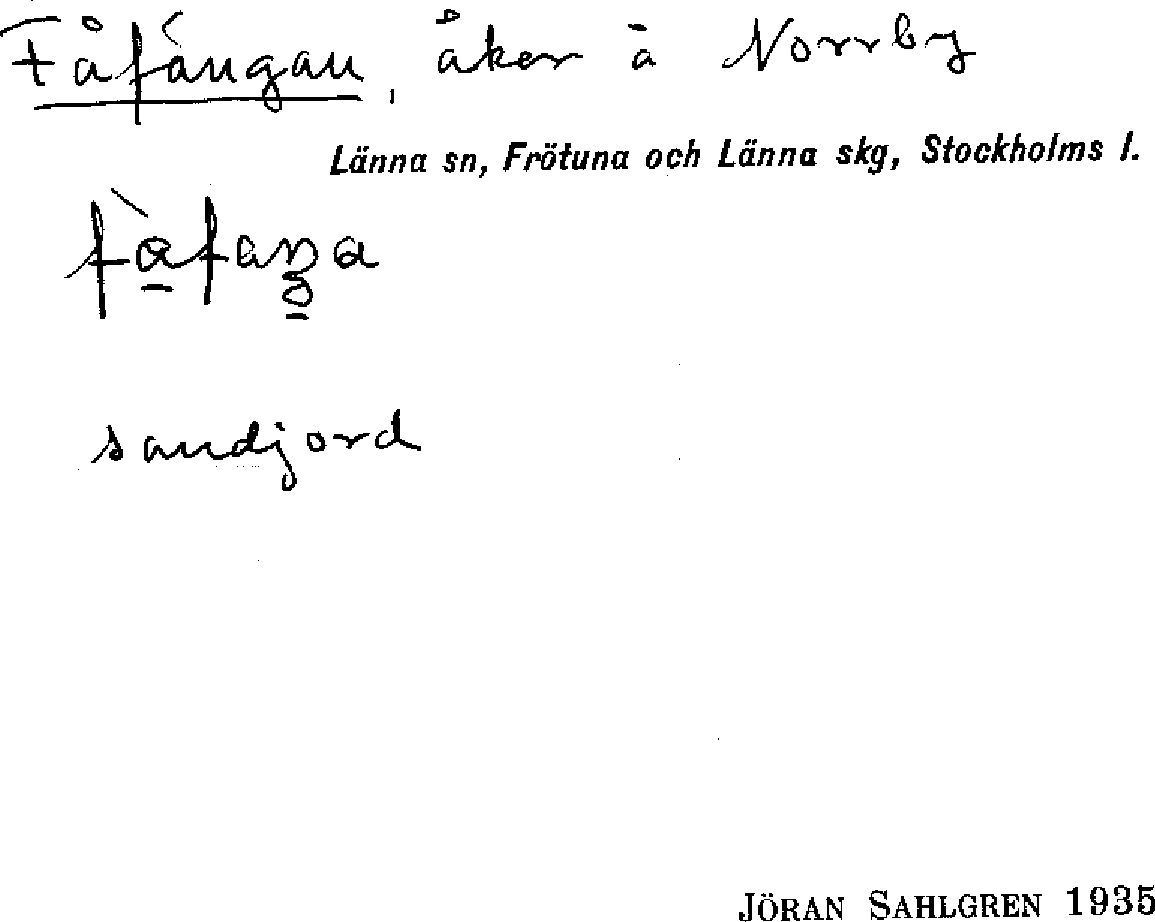 Fåfángan, åker å Norrby
Länna sn, Frötuna och Länna skg, Stockholms l.
fàfaŋa
sandjord
JÖRAN SAHLGREN 1935